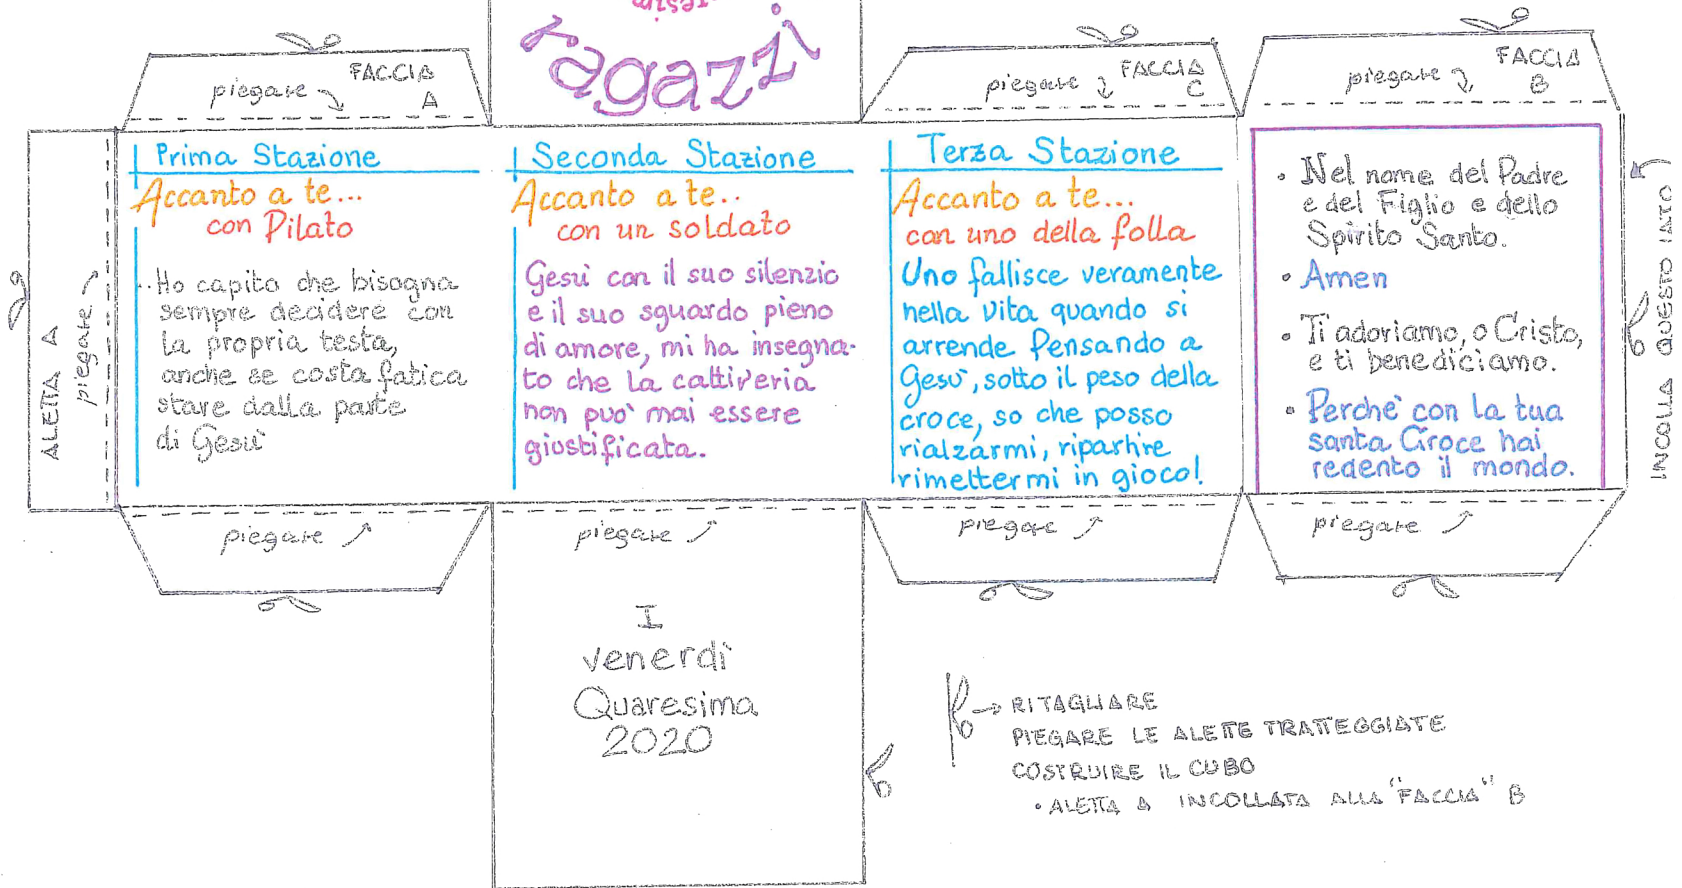 ragazzi
piegare
FACCIA
A
piegare
FACCIA
C
piegare
FACCIA
B
ALETTA A
piegare
Prima Stazione
Accanto a te...
con Pilato
..Ho capito che bisogna
sempre decidere con
la propria testa,
anche se costa fatica
stare dalla parte
di Gesù
Seconda Stazione
Accanto a te..
con un soldato
Gesù con il suo silenzio
e il suo sguardo pieno
di amore, mi ha insegna-
to che la cattiveria
non può mai essere
giustificata.
Terza Stazione
Accanto a te...
con uno della folla
Uno fallisce veramente
nella vita quando si
arrende Pensando a
Gesù, sotto il peso della
croce, so che posso
rialzarmi, ripartire
rimettermi in gioco!
• Nel nome del Padre
e del Figlio e dello
Spirito Santo.
• Amen
• Ti adoriamo, o Cristo,
e ti benediciamo.
• Perchè con la tua
santa Croce hai
redento il mondo.
INCOLLA QUESTO LATO
piegare
piegare
piegare
piegare
I
venerdì
Quaresima
2020
RITAGLIARE
PIEGARE LE ALETTE TRATTEGGIATE
COSTRUIRE IL CUBO
• ALETTA A INCOLLATA ALLA "FACCIA" B